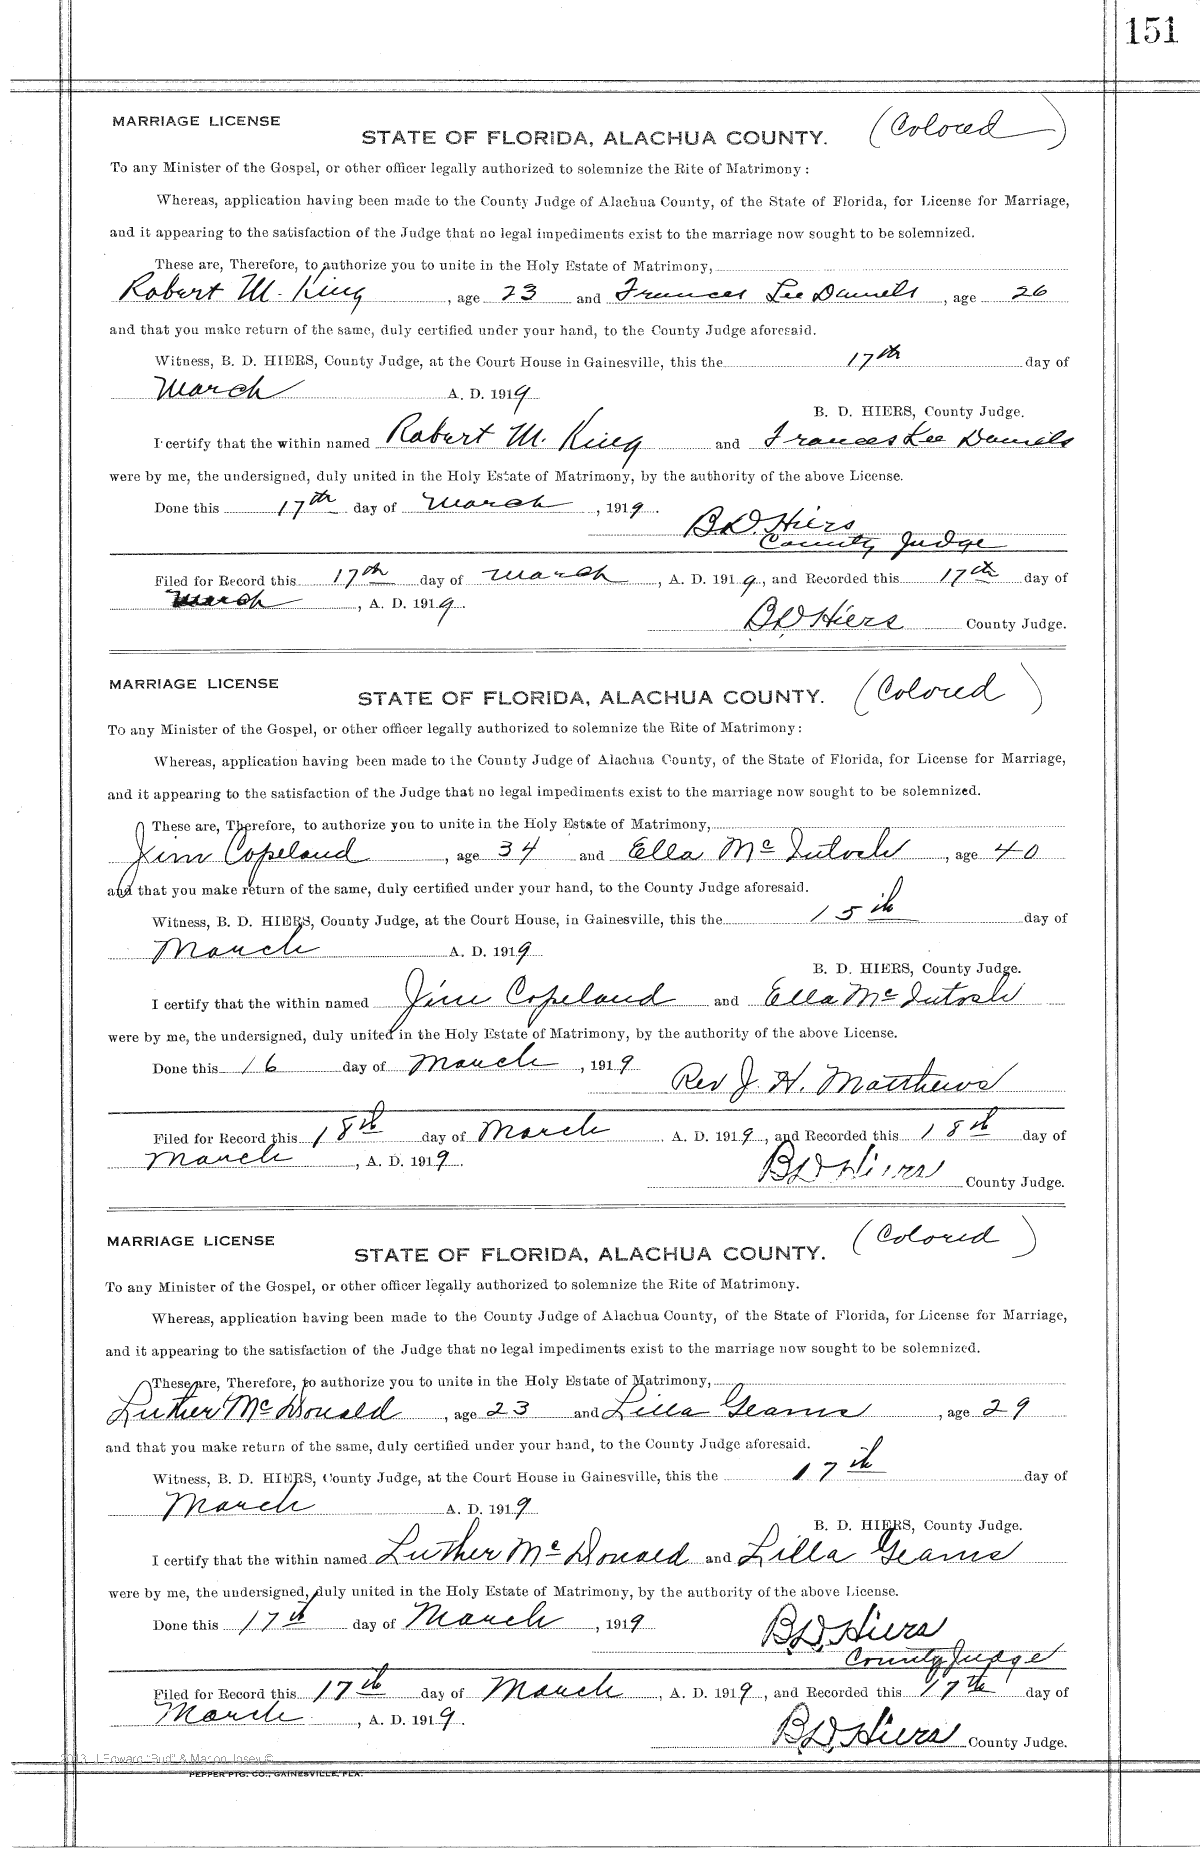 151
MARRIAGE LICENSE
STATE OF FLORIDA, ALACHUA COUNTY. (Colored)
To any Minister of the Gospel, or other officer legally authorized to solemnize the Rite of Matrimony:
Whereas, application having been made to the County Judge of Alachua County, of the State of Florida, for License for Marriage,
and it appearing to the satisfaction of the Judge that no legal impediments exist to the marriage now sought to be solemnized.
These are, Therefore, to authorize you to unite in the Holy Estate of Matrimony,
Robert M. King, age 23 and Frances Lee Daniels, age 26
and that you make return of the same, duly certified under your hand, to the County Judge aforesaid.
Witness, B. D. HIERS, County Judge, at the Court House in Gainesville, this the 17th day of
March A. D. 1919
B. D. HIERS, County Judge.
I certify that the within named Robert M. King and Frances Lee Daniels
were by me, the undersigned, duly united in the Holy Estate of Matrimony, by the authority of the above License.
Done this 17th day of March, 1919.
B.D. Hiers
County Judge
Filed for Record this 17th day of March, A. D. 1919, and Recorded this 17th day of
March, A. D. 1919.
BD Hiers County Judge.
MARRIAGE LICENSE
STATE OF FLORIDA, ALACHUA COUNTY. (Colored)
To any Minister of the Gospel, or other officer legally authorized to solemnize the Rite of Matrimony:
Whereas, application having been made to the County Judge of Alachua County, of the State of Florida, for License for Marriage,
and it appearing to the satisfaction of the Judge that no legal impediments exist to the marriage now sought to be solemnized.
These are, Therefore, to authorize you to unite in the Holy Estate of Matrimony,
Jim Copeland, age 34 and Ella McIntosh, age 40
and that you make return of the same, duly certified under your hand, to the County Judge aforesaid.
Witness, B. D. HIERS, County Judge, at the Court House, in Gainesville, this the 15th day of
March A. D. 1919
B. D. HIERS, County Judge.
I certify that the within named Jim Copeland and Ella McIntosh
were by me, the undersigned, duly united in the Holy Estate of Matrimony, by the authority of the above License.
Done this 16 day of March, 1919
Rev J. H. Matthews
Filed for Record this 18th day of March A. D. 1919, and Recorded this 18th day of
March, A. D. 1919.
BD Hiers County Judge.
MARRIAGE LICENSE
STATE OF FLORIDA, ALACHUA COUNTY. (Colored)
To any Minister of the Gospel, or other officer legally authorized to solemnize the Rite of Matrimony.
Whereas, application having been made to the County Judge of Alachua County, of the State of Florida, for License for Marriage,
and it appearing to the satisfaction of the Judge that no legal impediments exist to the marriage now sought to be solemnized.
These are, Therefore, to authorize you to unite in the Holy Estate of Matrimony,
Luther McDonald, age 23 and Lilla Geams, age 29
and that you make return of the same, duly certified under your hand, to the County Judge aforesaid.
Witness, B. D. HIERS, County Judge, at the Court House in Gainesville, this the 17th day of
March A. D. 1919
B. D. HIERS, County Judge.
I certify that the within named Luther McDonald and Lilla Geams
were by me, the undersigned, duly united in the Holy Estate of Matrimony, by the authority of the above License.
Done this 17th day of March, 1919
B.D. Hiers
County Judge
Filed for Record this 17th day of March, A. D. 1919, and Recorded this 17th day of
March, A. D. 1919.
B.D. Hiers County Judge.
J Edward "Bud" & Macon Josey ©
PEPPER PTG. CO., GAINESVILLE, FLA.